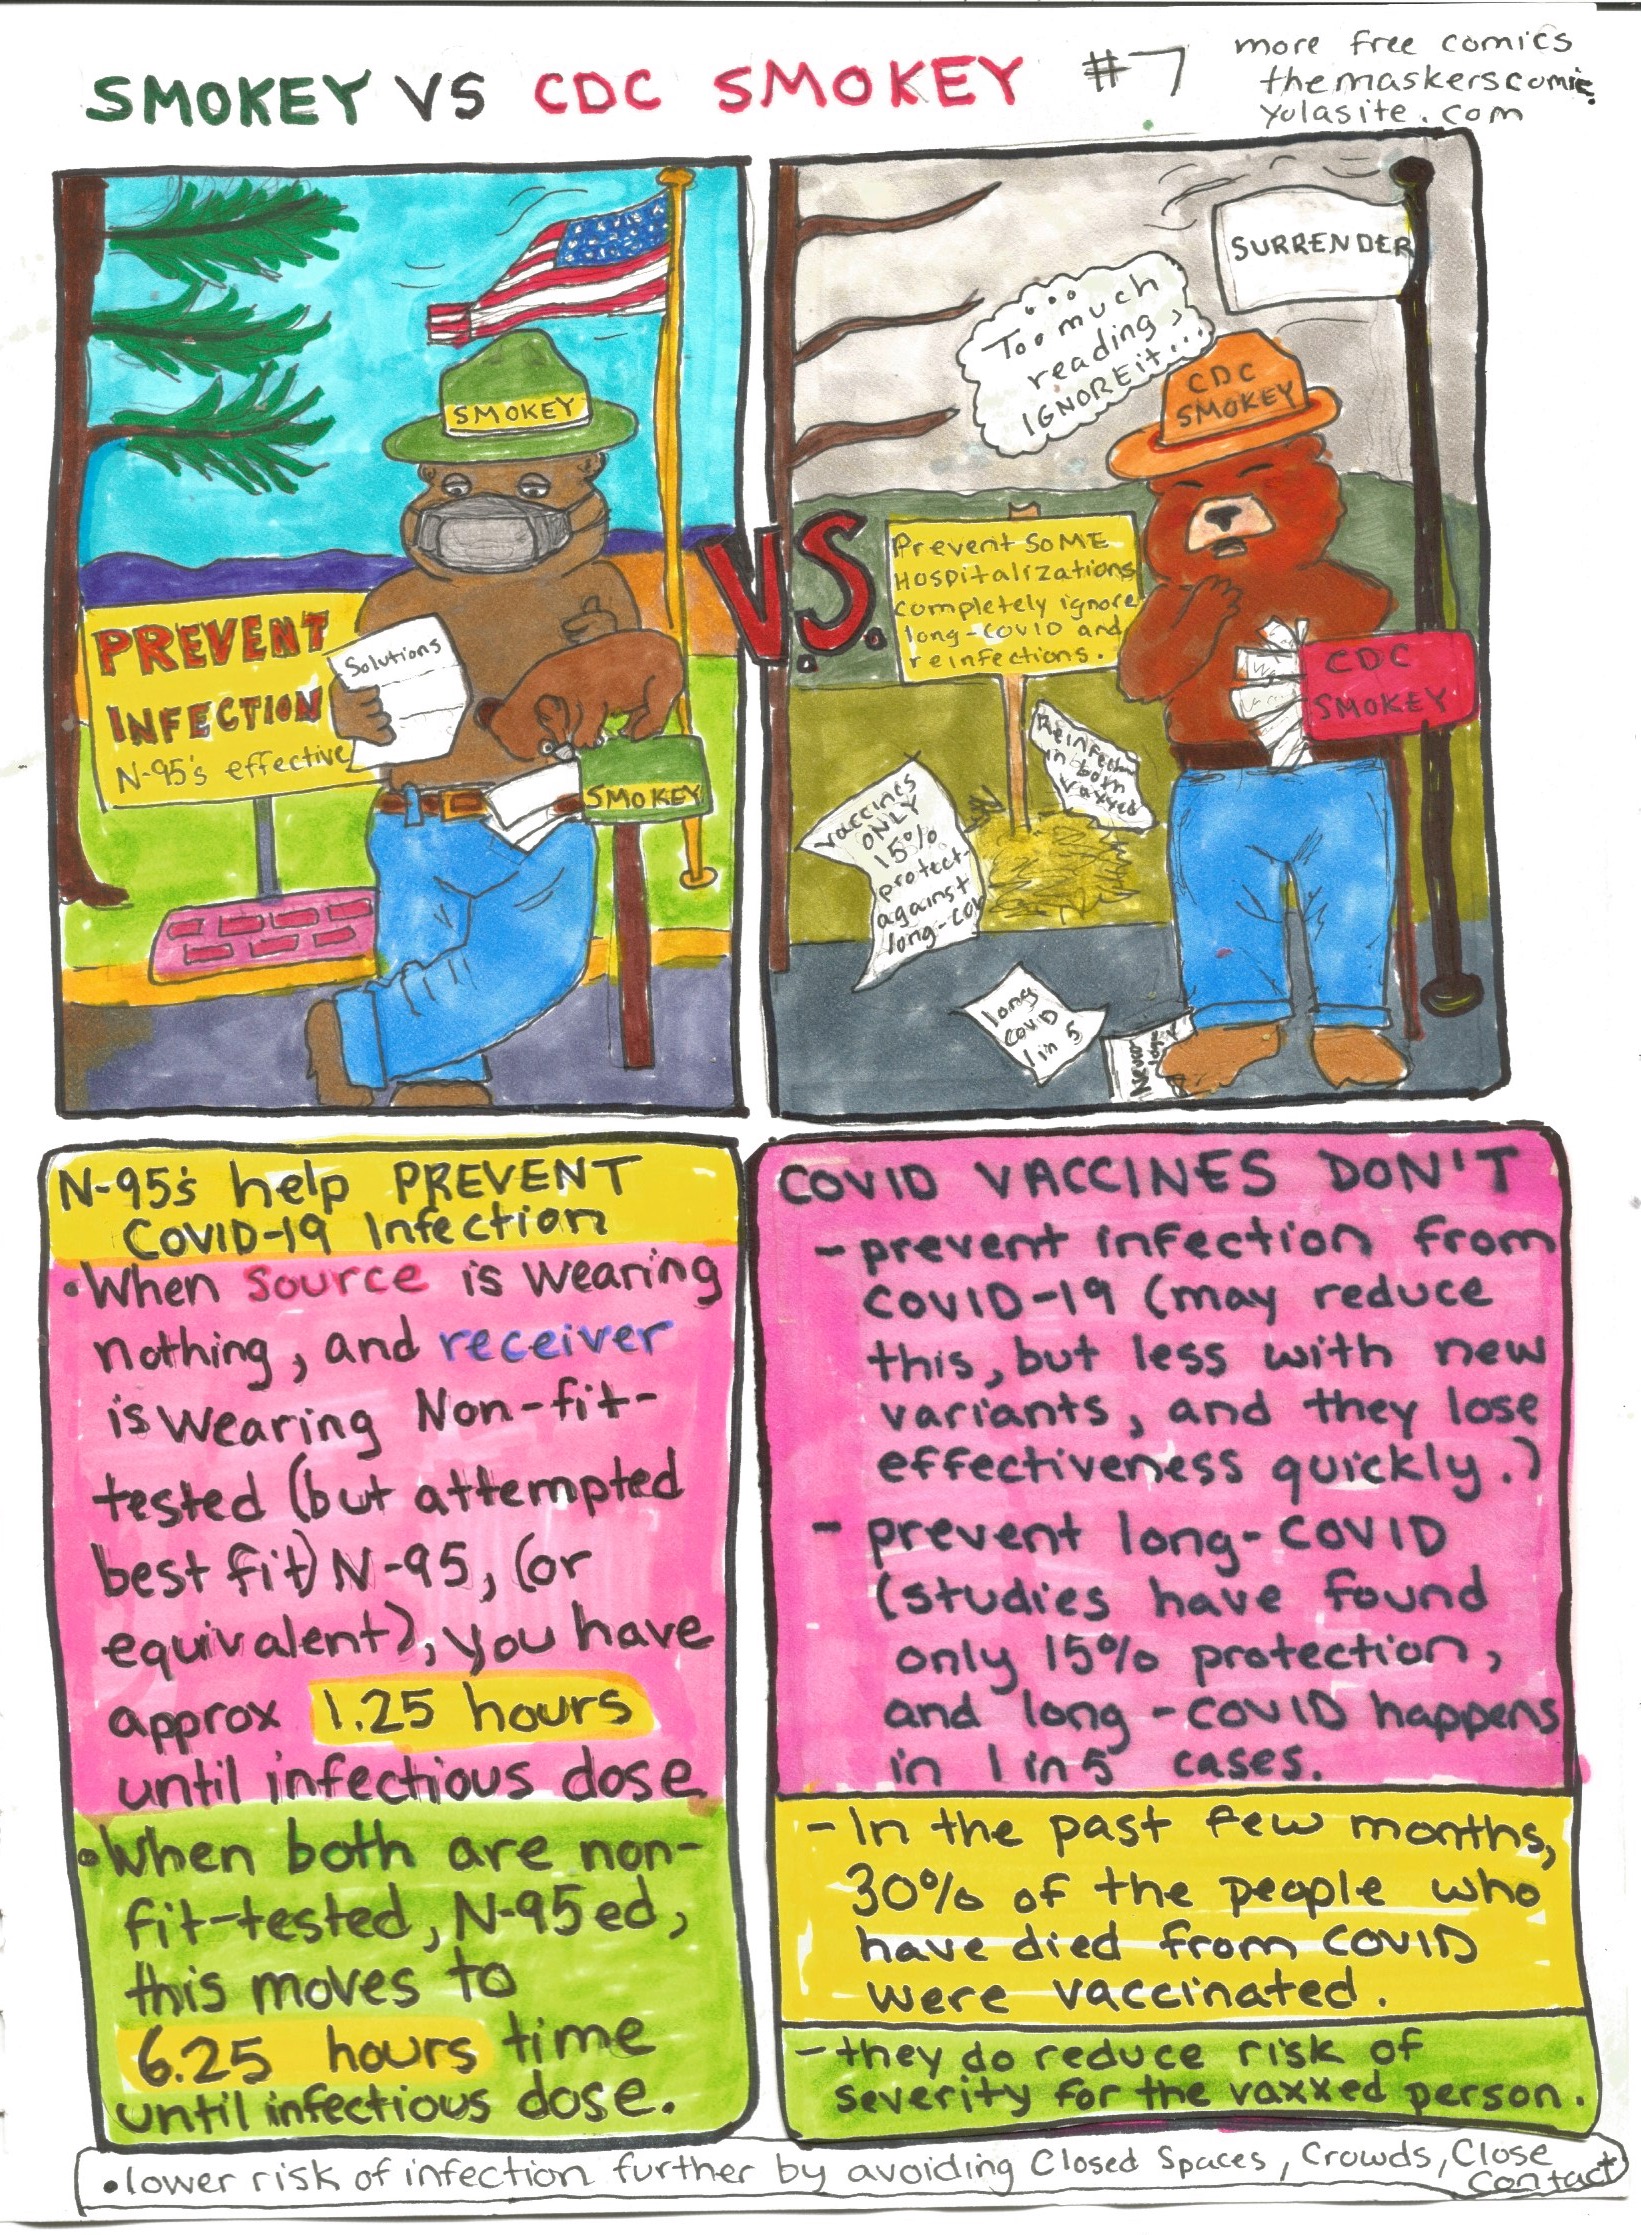 SMOKEY VS CDC SMOKEY #7
more free comics
themaskerscomic.
yolasite.com
SMOKEY
PREVENT
INFECTION
N-95's effective
Solutions
SMOKEY
VS.
SURRENDER
...
Too much
reading,
IGNORE it...
CDC
SMOKEY
Prevent SOME
Hospitalizations
completely ignore
long-COVID and
reinfections.
CDC
SMOKEY
Reinfection
in both
vaxxed
vaccines
ONLY
15%
protect
against
long-COV
long
COVID
1 in 5
N-95's help PREVENT
COVID-19 Infection
• When source is wearing
nothing, and receiver
is wearing Non-fit-
tested (but attempted
best fit) N-95, (or
equivalent), you have
approx 1.25 hours
until infectious dose
• When both are non-
fit-tested, N-95ed,
this moves to
6.25 hours time
until infectious dose.
COVID VACCINES DON'T
- prevent infection from
COVID-19 (may reduce
this, but less with new
variants, and they lose
effectiveness quickly.)
- prevent long-COVID
(studies have found
only 15% protection,
and long-COVID happens
in 1 in 5 cases.
- In the past few months,
30% of the people who
have died from COVID
were vaccinated.
- they do reduce risk of
severity for the vaxxed person.
• lower risk of infection further by avoiding Closed Spaces, Crowds, Close
Contact